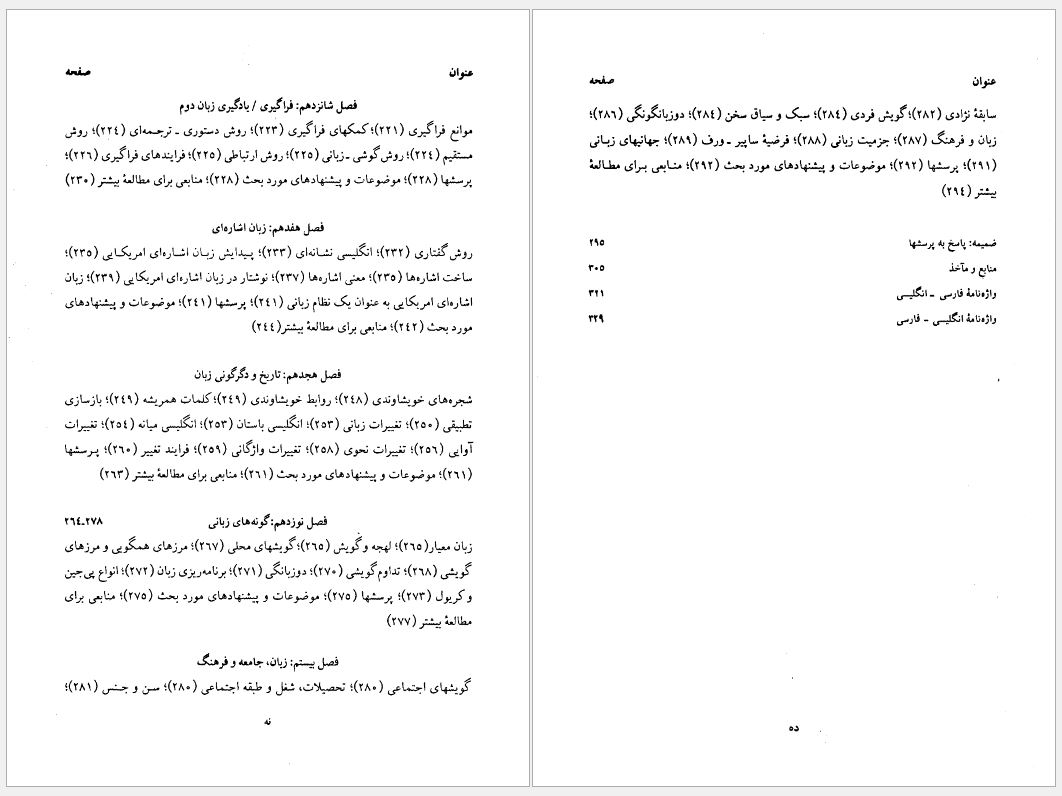 عنوان صفحه
فصل شانزدهم: فراگیری / یادگیری زبان دوم
موانع فراگیری (۲۲۱)؛ کمکهای فراگیری (۲۲۳)؛ روش دستوری ـ ترجمه‌ای (۲۲٤)؛ روش
مستقیم (۲۲٤)؛ روش گوشی ـ زبانی (۲۲۵)؛ روش ارتباطی (۲۲۵)؛ فرایندهای فراگیری (۲۲٦)؛
پرسشها (۲۲۸)؛ موضوعات و پیشنهادهای مورد بحث (۲۲۸)؛ منابعی برای مطالعهٔ بیشتر (۲۳۰)
فصل هفدهم: زبان اشاره‌ای
روش گفتاری (۲۳۲)؛ انگلیسی نشانه‌ای (۲۳۳)؛ پیدایش زبان اشاره‌ای امریکایی (۲۳۵)؛
ساخت اشاره‌ها (۲۳۵)؛ معنی اشاره‌ها (۲۳۷)؛ نوشتار در زبان اشاره‌ای امریکایی (۲۳۹)؛ زبان
اشاره‌ای امریکایی به عنوان یک نظام زبانی (۲٤۱)؛ پرسشها (۲٤۱)؛ موضوعات و پیشنهادهای
مورد بحث (۲٤۲)؛ منابعی برای مطالعهٔ بیشتر (۲٤٤)
فصل هجدهم: تاریخ و دگرگونی زبان
شجره‌های خویشاوندی (۲٤۸)؛ روابط خویشاوندی (۲٤۹)؛ کلمات همریشه (۲٤۹)؛ بازسازی
تطبیقی (۲۵۰)؛ تغییرات زبانی (۲۵۳)؛ انگلیسی باستان (۲۵۳)؛ انگلیسی میانه (۲۵٤)؛ تغییرات
آوایی (۲۵٦)؛ تغییرات نحوی (۲۵۸)؛ تغییرات واژگانی (۲۵۹)؛ فرایند تغییر (۲٦۰)؛ پرسشها
(۲٦۱)؛ موضوعات و پیشنهادهای مورد بحث (۲٦۱)؛ منابعی برای مطالعهٔ بیشتر (۲٦۳)
فصل نوزدهم: گونه‌های زبانی ۲٦٤ـ۲۷۸
زبان معیار (۲٦۵)؛ لهجه و گویش (۲٦۵)؛ گویشهای محلی (۲٦۷)؛ مرزهای همگویی و مرزهای
گویشی (۲٦۸)؛ تداوم گویشی (۲۷۰)؛ دوزبانگی (۲۷۱)؛ برنامه‌ریزی زبان (۲۷۲)؛ انواع پی‌جین
و کریول (۲۷۳)؛ پرسشها (۲۷۵)؛ موضوعات و پیشنهادهای مورد بحث (۲۷۵)؛ منابعی برای
مطالعهٔ بیشتر (۲۷۷)
فصل بیستم: زبان، جامعه و فرهنگ
گویشهای اجتماعی (۲۸۰)؛ تحصیلات، شغل و طبقه اجتماعی (۲۸۰)؛ سن و جنس (۲۸۱)؛
نه
عنوان صفحه
سابقهٔ نژادی (۲۸۲)؛ گویش فردی (۲۸٤)؛ سبک و سیاق سخن (۲۸٤)؛ دوزبانگونگی (۲۸٦)؛
زبان و فرهنگ (۲۸۷)؛ جزمیت زبانی (۲۸۸)؛ فرضیهٔ ساپیر ـ ورف (۲۸۹)؛ جهانیهای زبانی
(۲۹۱)؛ پرسشها (۲۹۲)؛ موضوعات و پیشنهادهای مورد بحث (۲۹۲)؛ منابعی برای مطالعهٔ
بیشتر (۲۹٤)
ضمیمه: پاسخ به پرسشها ۲۹۵
منابع و مآخذ ۳۰۵
واژه‌نامهٔ فارسی ـ انگلیسی ۳۲۱
واژه‌نامهٔ انگلیسی ـ فارسی ۳۲۹
ده